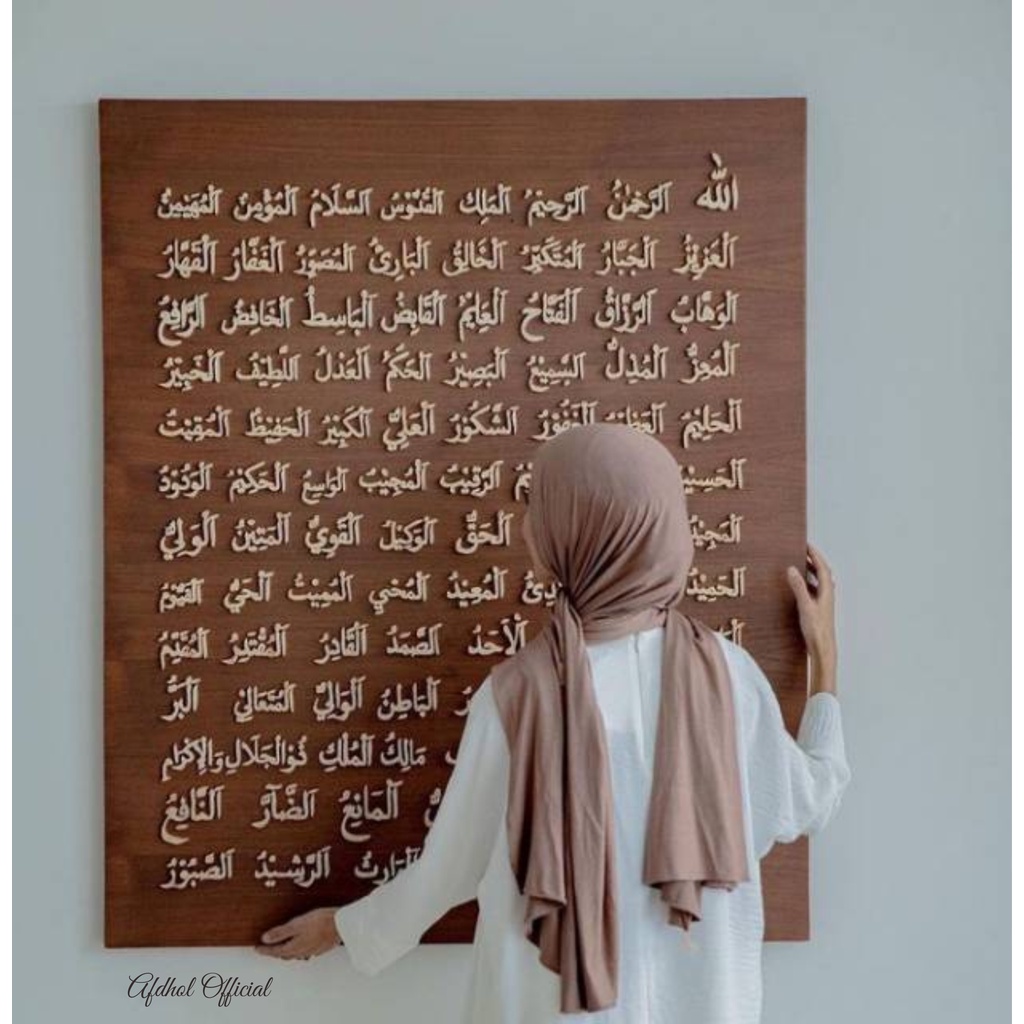 الله الرَّحْمٰنُ الرَّحِيْمُ الْمَلِكُ الْقُدُّوْسُ السَّلَامُ الْمُؤْمِنُ الْمُهَيْمِنُ
الْعَزِيْزُ الْجَبَّارُ الْمُتَكَبِّرُ الْخَالِقُ الْبَارِئُ الْمُصَوِّرُ الْغَفَّارُ الْقَهَّارُ
الْوَهَّابُ الرَّزَّاقُ الْفَتَّاحُ الْعَلِيْمُ الْقَابِضُ الْبَاسِطُ الْخَافِضُ الرَّافِعُ
الْمُعِزُّ الْمُذِلُّ السَّمِيْعُ الْبَصِيْرُ الْحَكَمُ الْعَدْلُ اللَّطِيْفُ الْخَبِيْرُ
الْحَلِيْمُ الْعَظِيْمُ الْغَفُوْرُ الشَّكُوْرُ الْعَلِيُّ الْكَبِيْرُ الْحَفِيْظُ الْمُقِيْتُ
الرَّقِيْبُ الْمُجِيْبُ الْوَاسِعُ الْحَكِيْمُ الْوَدُوْدُ
الْمَجِيْدُ الْحَقُّ الْوَكِيْلُ الْقَوِيُّ الْمَتِيْنُ الْوَلِيُّ
الْحَمِيْدُ الْمُعِيْدُ الْمُحْيِ الْمُمِيْتُ الْحَيُّ الْقَيُّوْمُ
الْأَحَدُ الصَّمَدُ الْقَادِرُ الْمُقْتَدِرُ الْمُقَدِّمُ
الْبَاطِنُ الْوَالِيُّ الْمُتَعَالِيْ الْبَرُّ
مَالِكُ الْمُلْكِ ذُوالْجَلَالِ وَالْإِكْرَامِ
الْمَانِعُ الضَّآرَّ النَّافِعُ
الْوَارِثُ الرَّشِيْدُ الصَّبُوْرُ
Afdhol Official